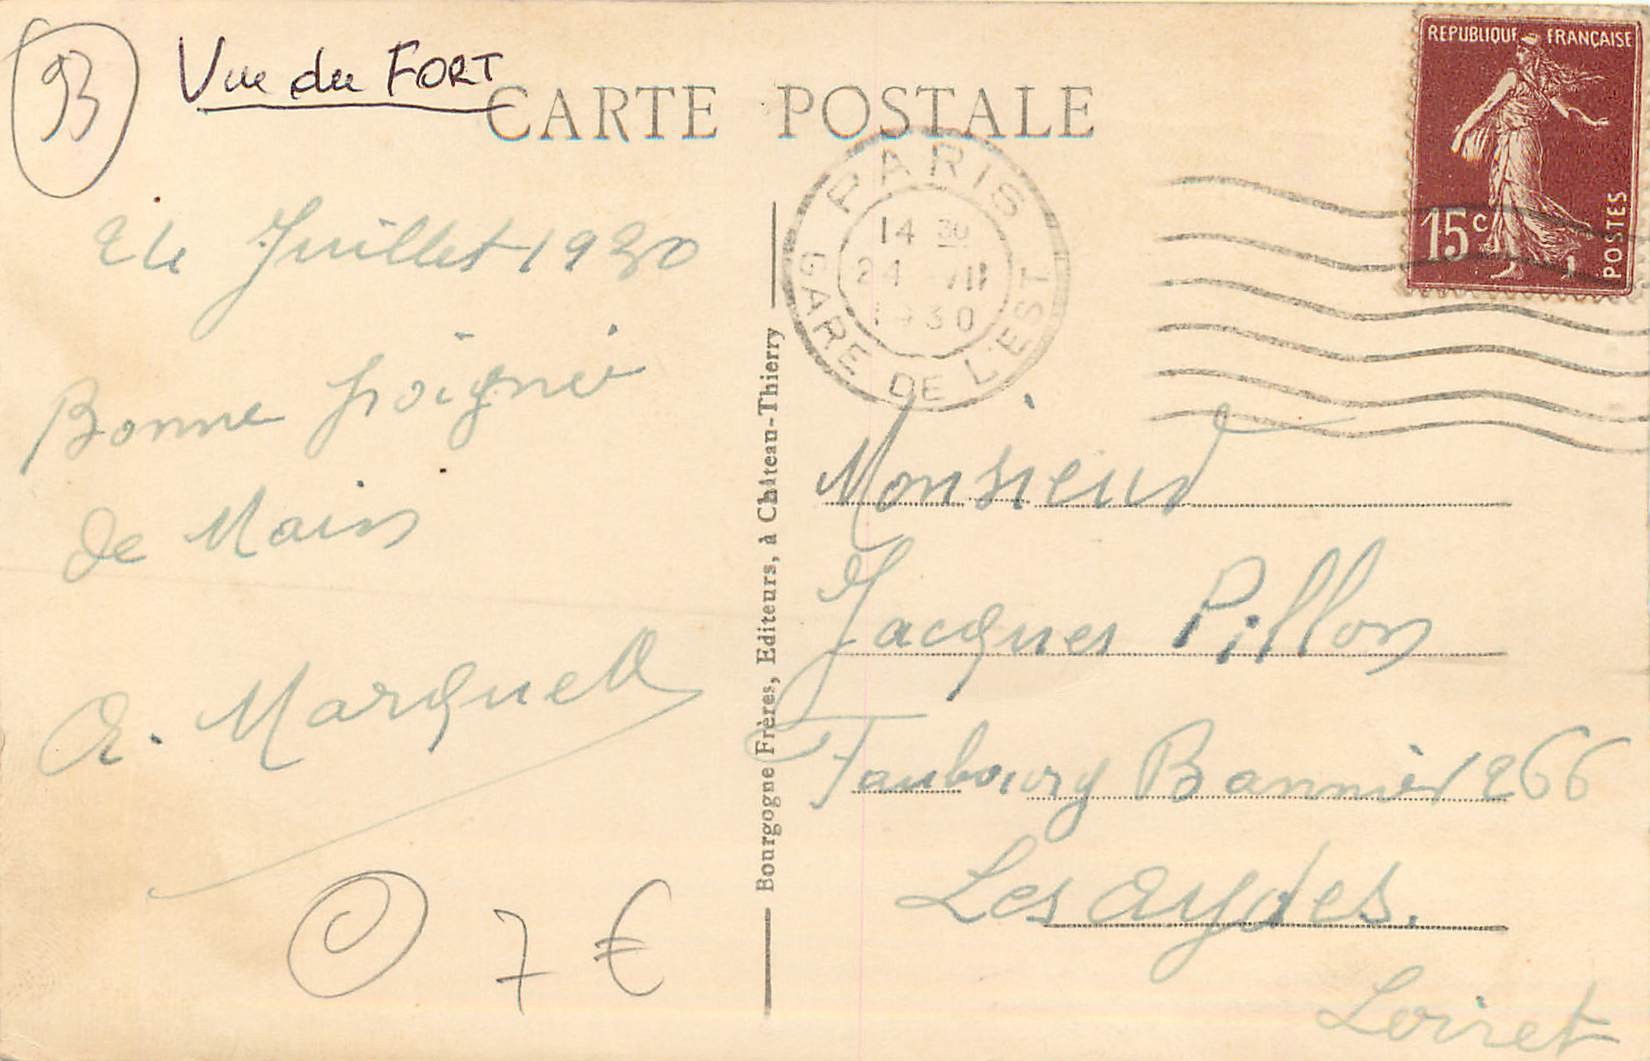 93
Vue du FORT
CARTE POSTALE
REPUBLIQUE FRANÇAISE
15c
POSTES
PARIS
14 30
24 VII
1930
GARE DE L'EST
24 Juillet 1930
Bonne poignée
de Main
A. Marquell
7 €
Bourgogne Frères, Editeurs, à Château-Thierry
Monsieur
Jacques Pillon
Faubourg Bannier 266
Les Aydes.
Loiret